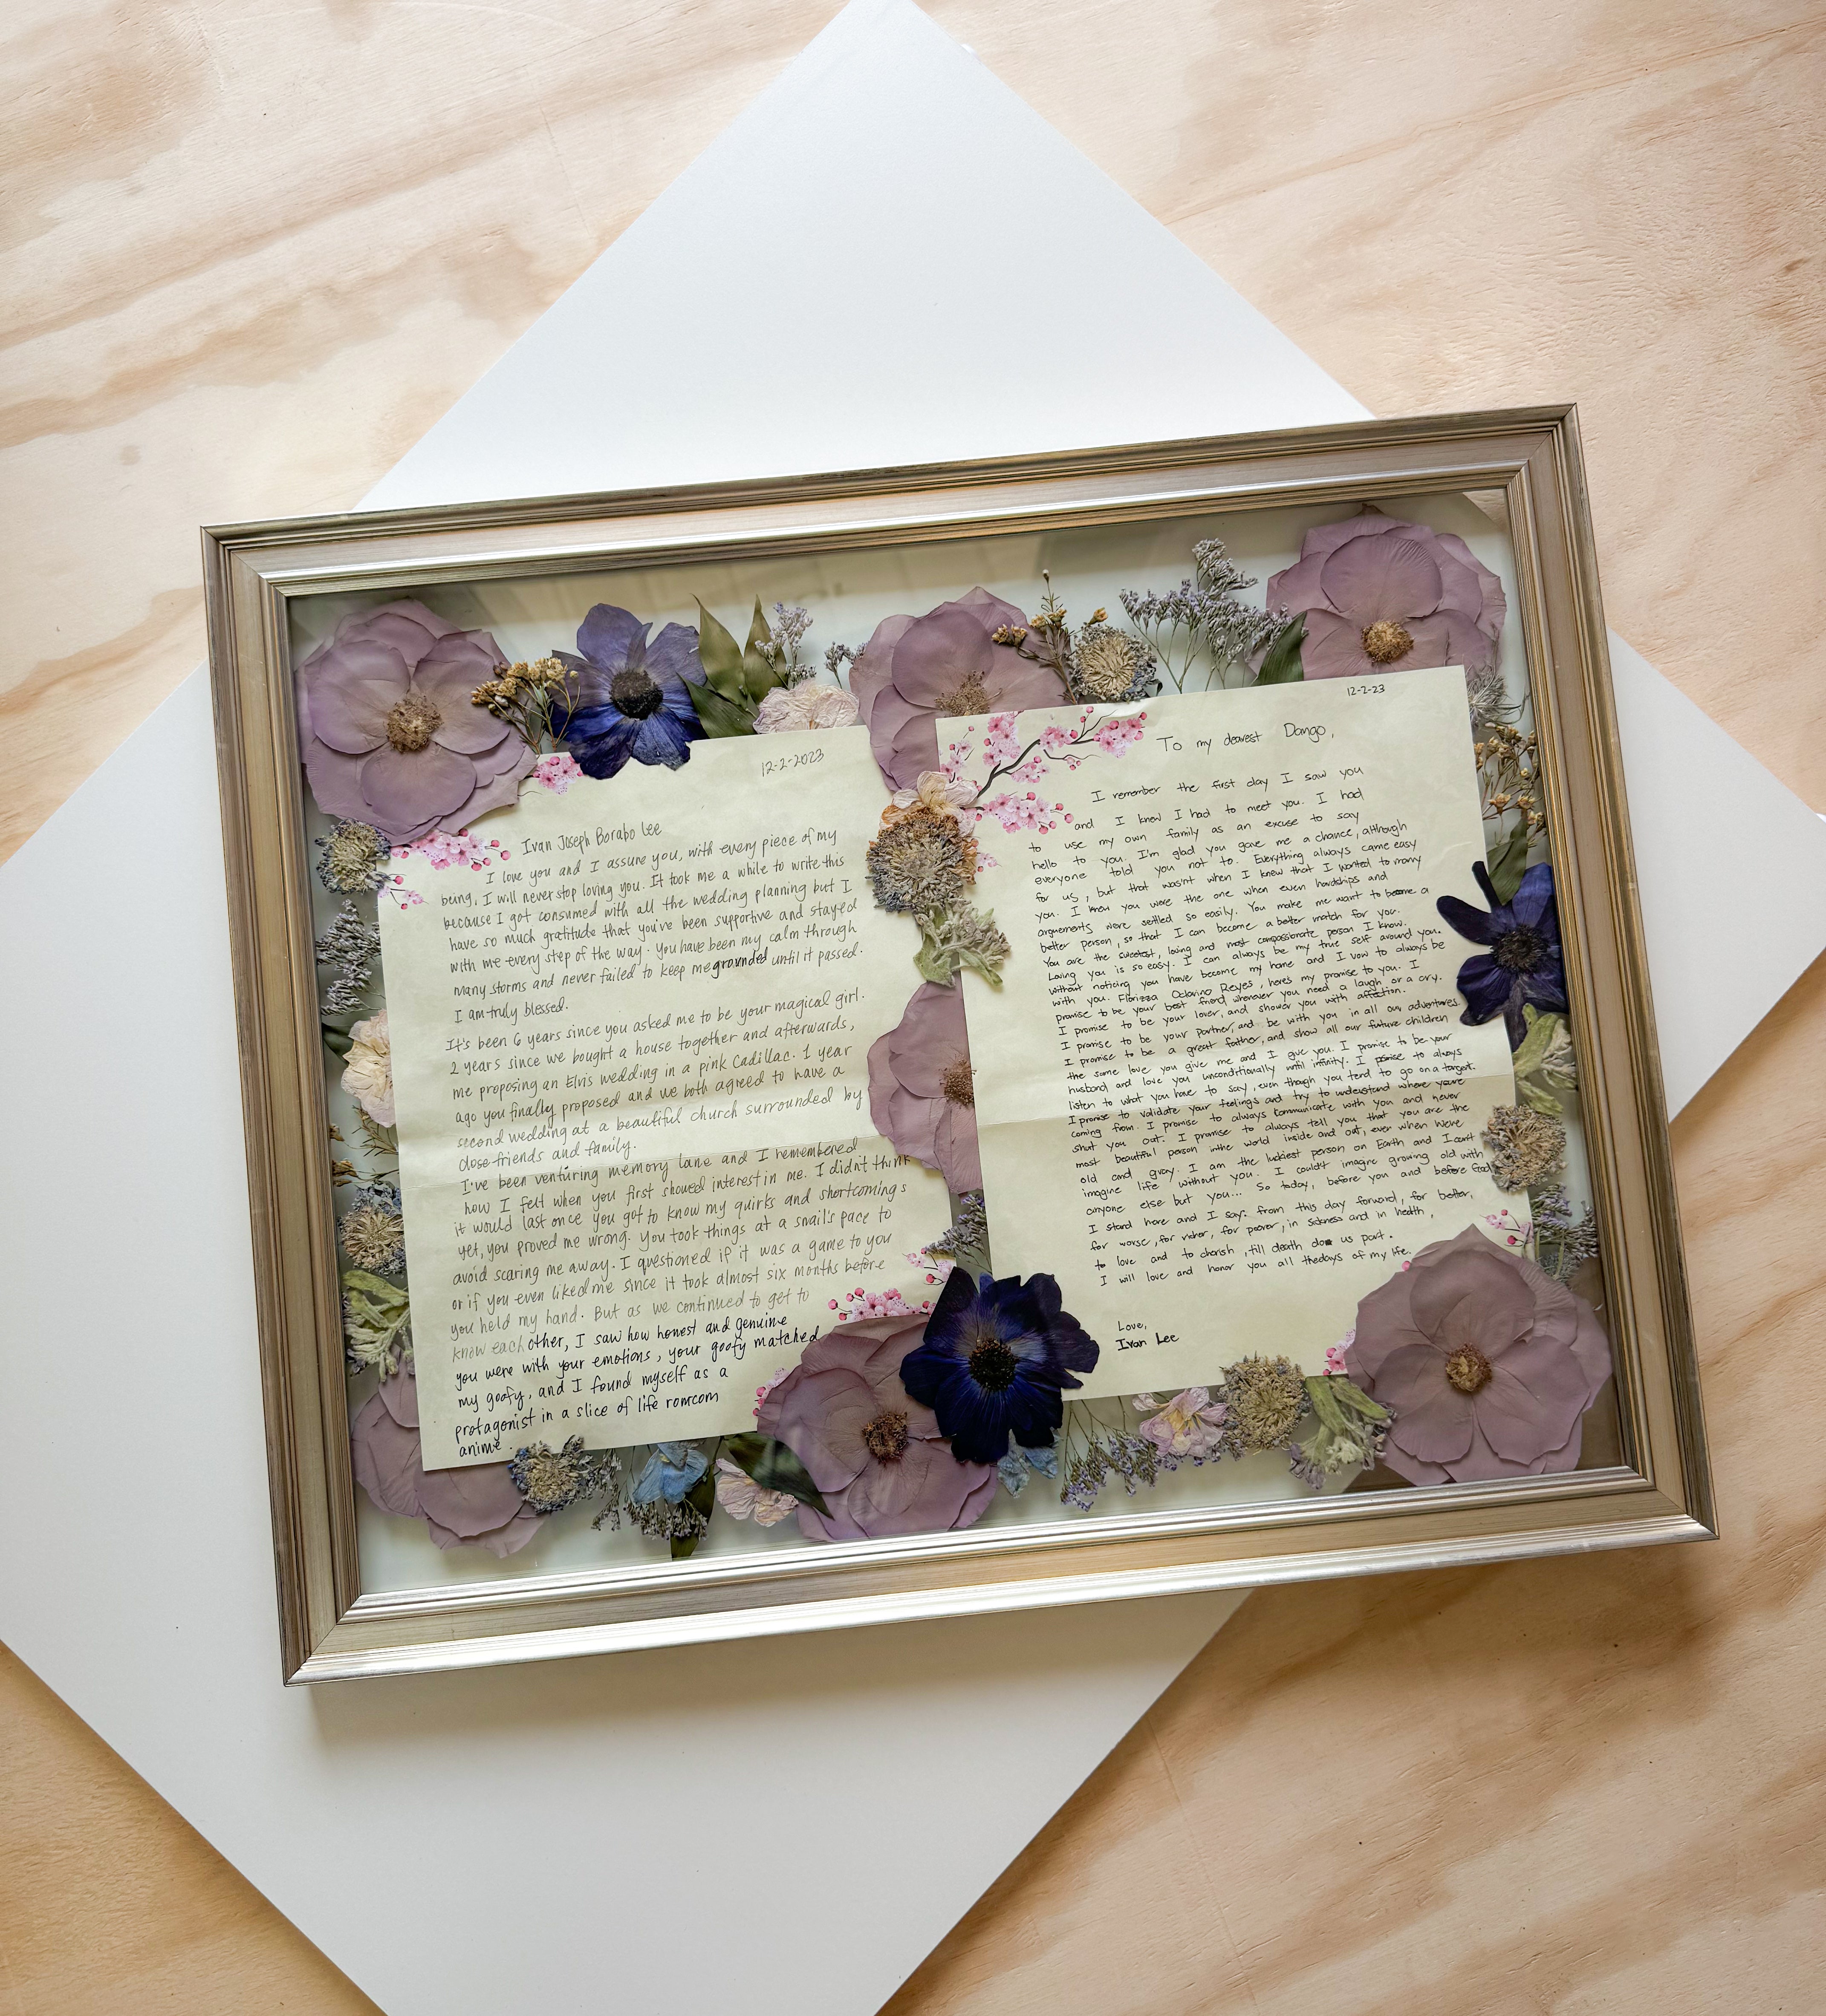 12-2-2023
Ivan Joseph Borabo Lee
I love you and I assure you, with every piece of my
being, I will never stop loving you. It took me a while to write this
because I got consumed with all the wedding planning but I
have so much gratitude that you've been supportive and stayed
with me every step of the way. You have been my calm through
many storms and never failed to keep me grounded until it passed.
I am truly blessed.
It's been 6 years since you asked me to be your magical girl.
2 years since we bought a house together and afterwards,
me proposing an Elvis wedding in a pink Cadillac. 1 year
ago you finally proposed and we both agreed to have a
second wedding at a beautiful church surrounded by
close friends and family.
I've been venturing memory lane and I remembered
how I felt when you first showed interest in me. I didn't think
it would last once you got to know my quirks and shortcomings
yet, you proved me wrong. You took things at a snail's pace to
avoid scaring me away. I questioned if it was a game to you
or if you even liked me since it took almost six months before
you held my hand. But as we continued to get to
know each other, I saw how honest and genuine
you were with your emotions, your goofy matched
my goofy, and I found myself as a
protagonist in a slice of life romcom
anime.
12-2-23
To my dearest Dango,
I remember the first day I saw you
and I knew I had to meet you. I had
to use my own family as an excuse to say
hello to you. I'm glad you gave me a chance, although
everyone told you not to. Everything always came easy
for us, but that wasn't when I knew that I wanted to marry
you. I knew you were the one when even hardships and
arguements were settled so easily. You make me want to become a
better person, so that I can become a better match for you.
You are the sweetest, loving and most compassionate person I know.
Loving you is so easy. I can always be my true self around you.
Without noticing you have become my home and I vow to always be
with you. Florizza Octavino Reyes, heres my promise to you. I
promise to be your best friend, whenever you need a laugh or a cry.
I promise to be your lover, and shower you with affection.
I promise to be your partner, and be with you in all our adventures.
I promise to be a great father, and show all our future children
the same love you give me and I give you. I promise to be your
husband, and love you unconditionally until infinity. I promise to always
listen to what you have to say, even though you tend to go on a tangent.
I promise to validate your feelings and try to understand where you're
coming from. I promise to always communicate with you and never
shut you out. I promise to always tell you that you are the
most beautiful person in the world inside and out, even when we're
old and gray. I am the luckiest person on Earth and I can't
imagine life without you. I couldn't imagine growing old with
anyone else but you... So today, before you and before God,
I stand here and I say: from this day forward, for better,
for worse, for richer, for poorer, in sickness and in health,
to love and to cherish, till death do us part.
I will love and honor you all the days of my life.
Love,
Ivan Lee